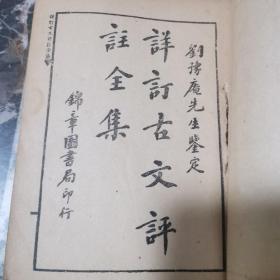 劉豫庵先生鑒定
詳訂古文評
註全集
錦章圖書局印行